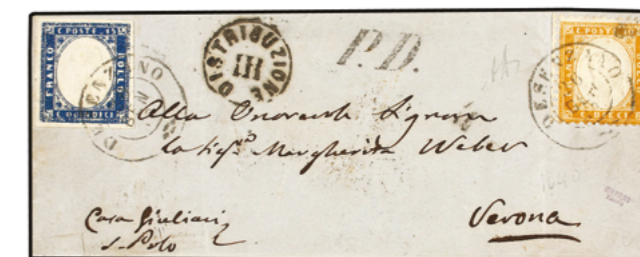 C. POSTE 15
FRANCO
BOLLO
C. QUINDICI
DESENZANO
DISTRIBUZIONE
III
P.D.
DESENZANO
Alla Onorevole Signora
la Sig.ra Margherita Weber
Casa Giuliari
S. Polo
Verona